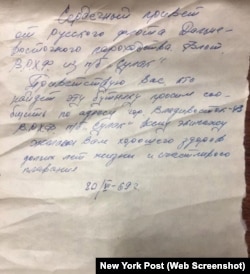 Сердечный привет
от Русского флота Дальне-
восточного пароходства. Флот
ВРХФ из п/б "Сулак"
Приветствую Вас кто
найдет эту бутылку просим сооб-
щить по адресу гор Владивосток-43
ВРХФ п/б "Сулак" всему экипажу
желаем Вам хорошего здоровья
долгих лет жизни и счастливого
плавания
20/VI-69г.
New York Post (Web Screenshot)